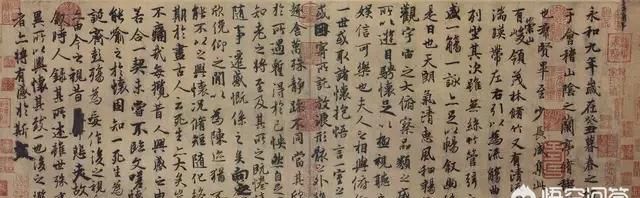 永和九年歲在癸丑暮春之
于會稽山陰之蘭亭脩稧
也群賢畢至少長咸集此
有崇山峻領茂林脩竹又有清
湍暎帶左右引以為流觴曲
列坐其次雖無絲竹管弦
盛一觴一詠亦足以暢敘幽
是日也天朗氣清惠風和暢
觀宇宙之大俯察品類之
所以遊目騁懷足以極視聽
娛信可樂也夫人之相與俯
一世或取諸懷抱悟言一室
或因寄所託放浪形骸之外
趣舍萬殊靜躁不同當其
於所遇蹔得於己怏然自足
知老之將至及其所之既惓
隨事遷感慨係之矣向之
俛仰之閒以為陳迹猶不
能不以之興懷況脩短隨化
期於盡古人云死生亦大矣
不痛哉每攬昔人興感之
若合一契未嘗不臨文嗟
能喻之於懷固知一死生為
誕齊彭殤為妄作後之視
亦由今之視昔悲夫故
敘時人錄其所述雖世殊
異所以興懷其致一也後之
者亦將有感於斯
悟空问答